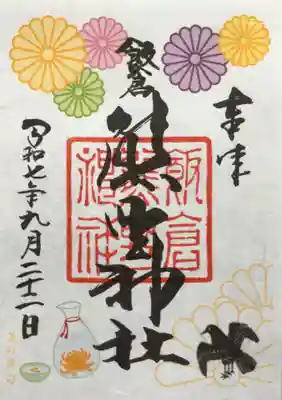 奉拝
飯倉
熊野神社
飯倉
熊野
神社
令和七年九月二十二日